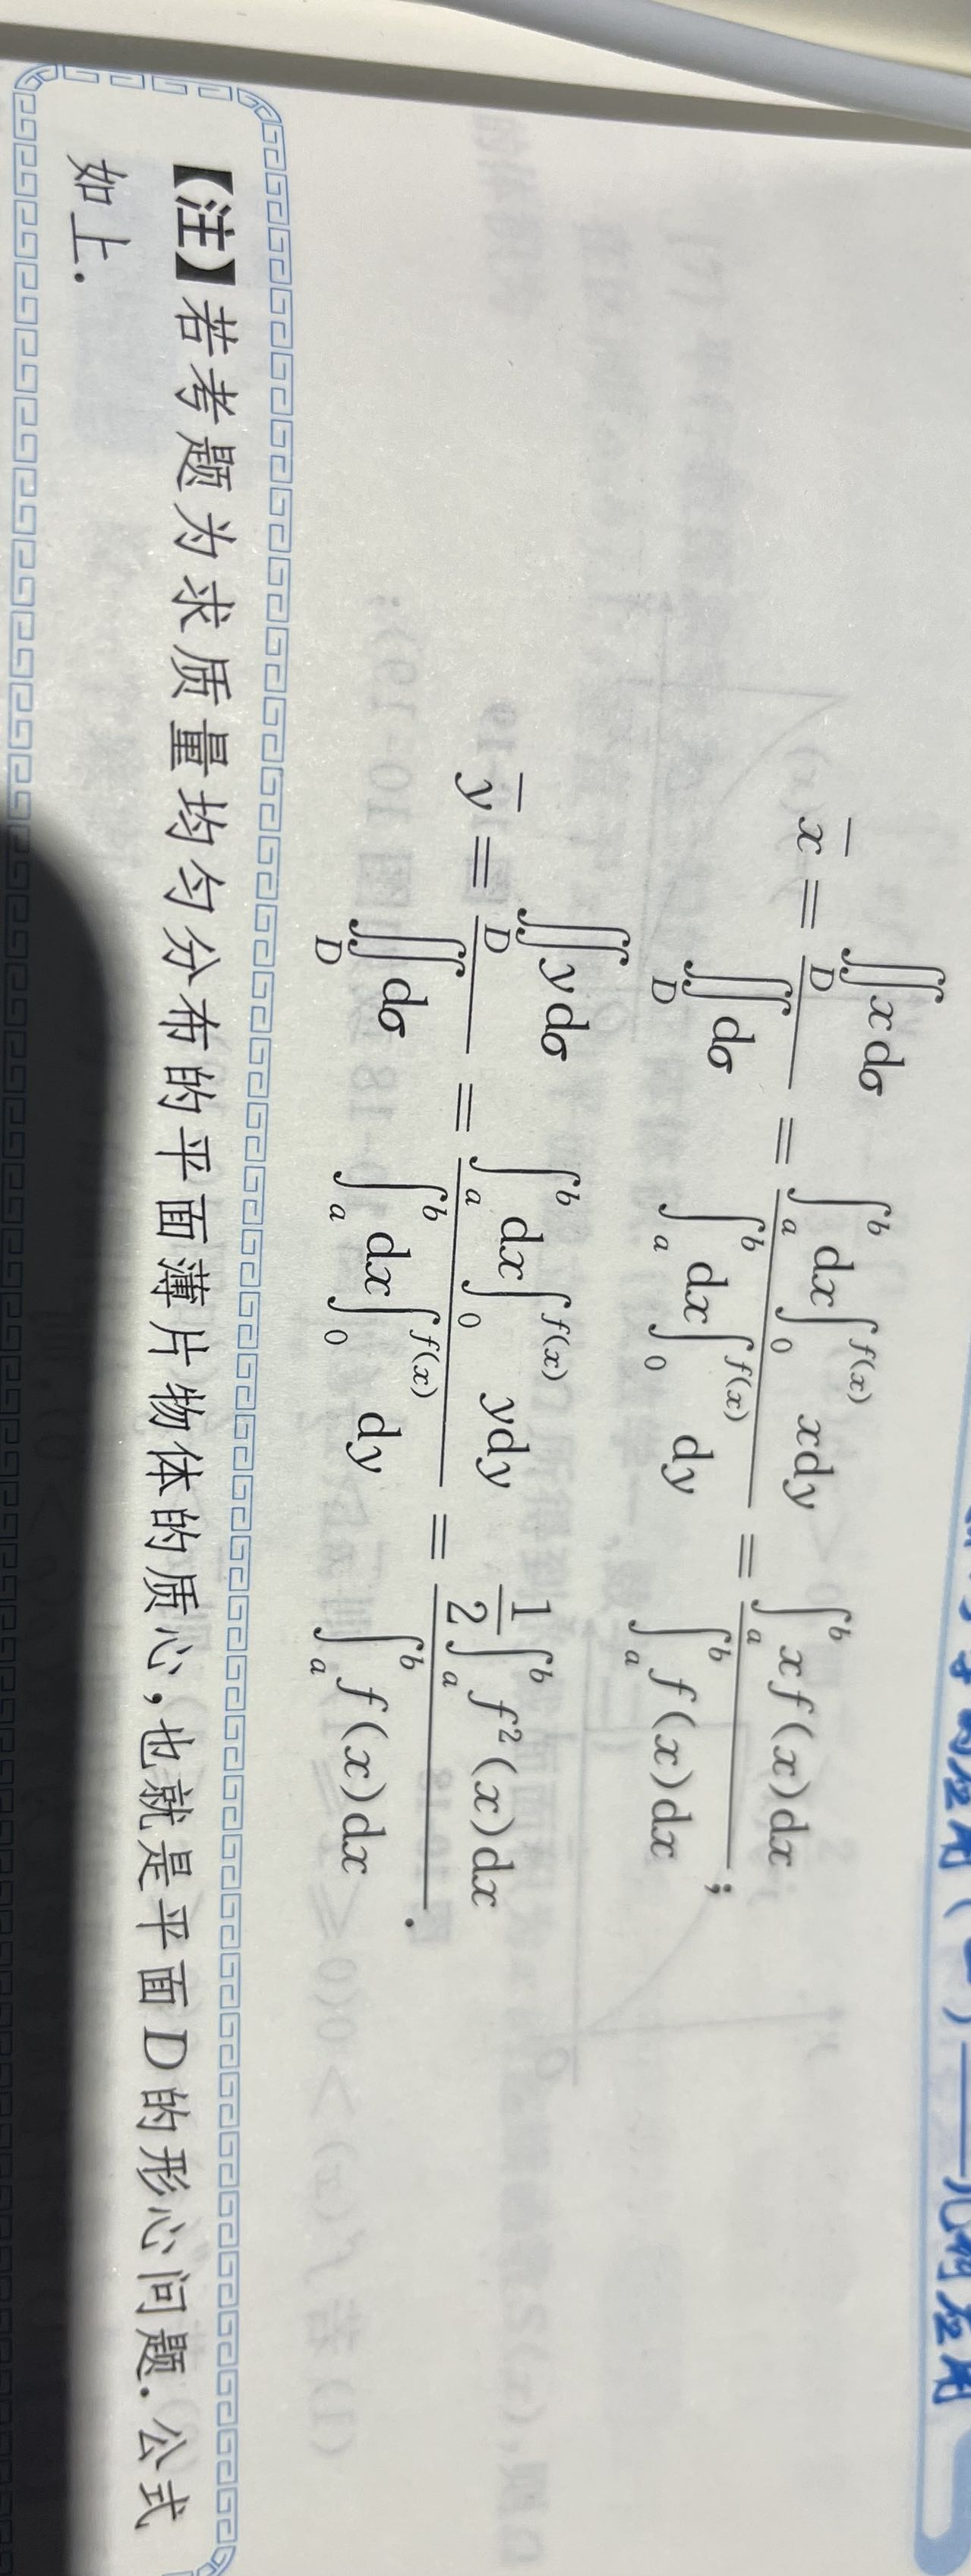 ——几何应用
$\bar{x}=\frac{\iint\limits_{D}x\mathrm{d}\sigma}{\iint\limits_{D}\mathrm{d}\sigma}=\frac{\int_{a}^{b}\mathrm{d}x\int_{0}^{f(x)}x\mathrm{d}y}{\int_{a}^{b}\mathrm{d}x\int_{0}^{f(x)}\mathrm{d}y}=\frac{\int_{a}^{b}xf(x)\mathrm{d}x}{\int_{a}^{b}f(x)\mathrm{d}x};$
$\bar{y}=\frac{\iint\limits_{D}y\mathrm{d}\sigma}{\iint\limits_{D}\mathrm{d}\sigma}=\frac{\int_{a}^{b}\mathrm{d}x\int_{0}^{f(x)}y\mathrm{d}y}{\int_{a}^{b}\mathrm{d}x\int_{0}^{f(x)}\mathrm{d}y}=\frac{\frac{1}{2}\int_{a}^{b}f^{2}(x)\mathrm{d}x}{\int_{a}^{b}f(x)\mathrm{d}x}.$
【注】若考题为求质量均匀分布的平面薄片物体的质心,也就是平面D的形心问题.公式
如上.